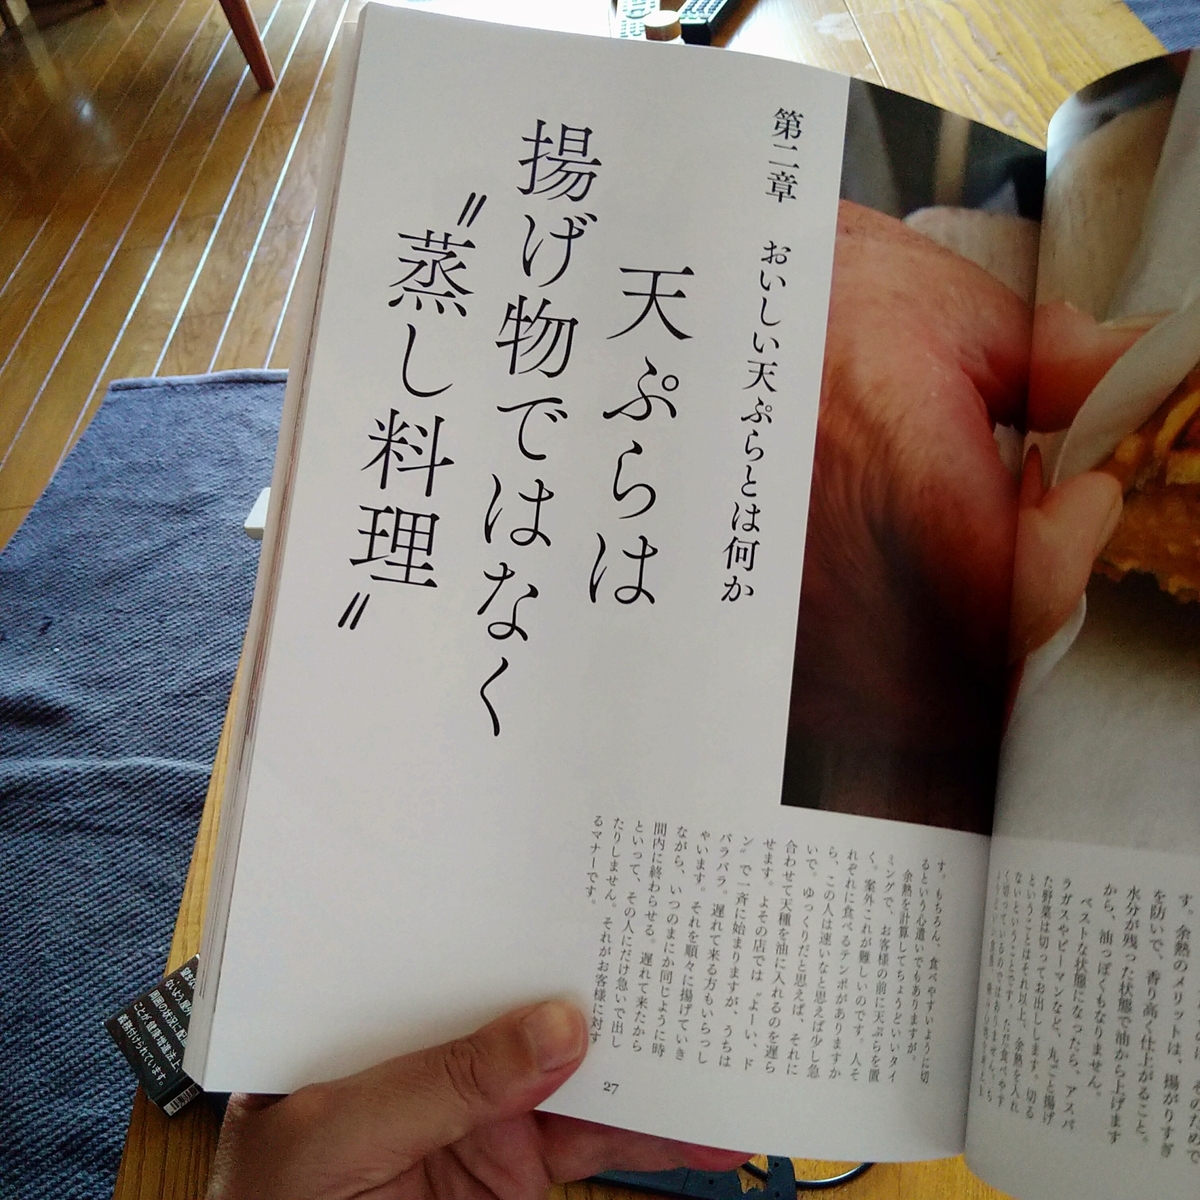 第二章 おいしい天ぷらとは何か
天ぷらは
揚げ物ではなく
〝蒸し料理〟
す。もちろん、食べやすいように切
るという心遣いでもありますが。
余熱を計算してちょうどいいタイ
ミングで、お客様の前に天ぷらを置
く。案外これが難しいのです。人そ
れぞれに食べるテンポがありますか
ら、この人は速いなと思えば少し急
いで。ゆっくりだと思えば、それに
合わせて天種を油に入れるのを遅ら
せます。よその店では〝よーい、ド
ン〟で一斉に始まりますが、うちは
バラバラ。遅れて来る方もいらっし
ゃいます。それを順々に揚げていき
ながら、いつのまにか同じように時
間内に終わらせる。遅れて来たから
といって、その人にだけ急いで出し
たりしません。それがお客様に対す
るマナーです。
27
す。余熱のメリットは、揚がりすぎ
を防いで、香り高く仕上がること。
水分が残った状態で油から上げます
から、油っぽくもなりません。
ベストな状態になったら、アスパ
ラガスやピーマンなど、丸ごと揚げ
た野菜は切ってお出しします。切る
ということはそれ以上、余熱を入れ
ないということです。ただ食べやす
く切っているのではありません。
周囲の状況に配
ことが、健康増進法上、
義務付けられています。